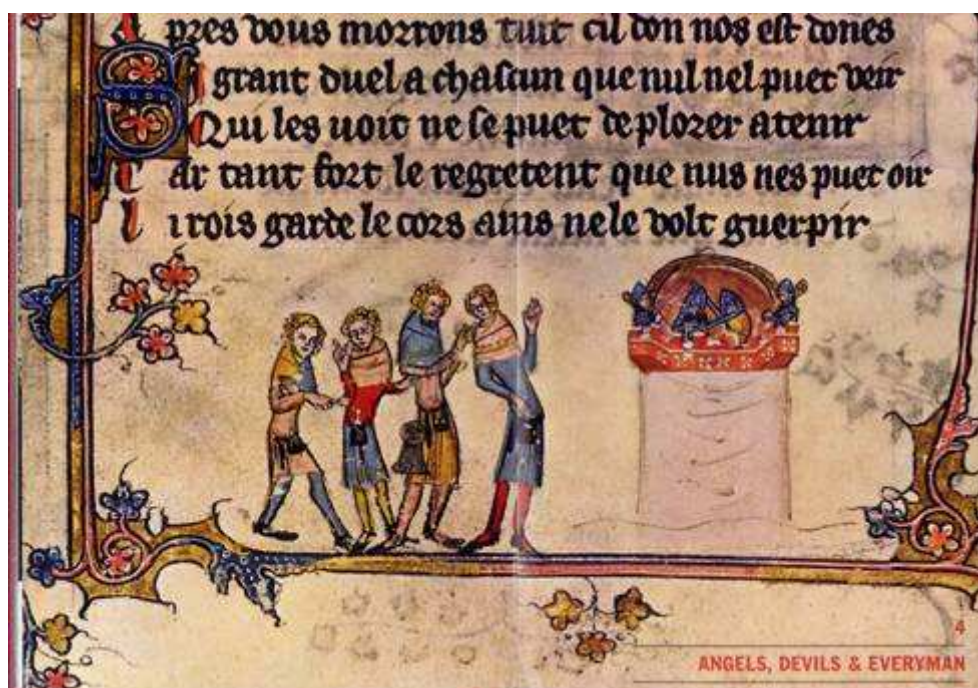 A pres vous morrons tuit cil don nos est dones
S i grant duel a chascun que nul nel puet veir
Qui les uoit ne se puet de plorer atenir
C ar tant fort le regretent que nus nes puet oir
l i rois garde le cors ains ne le volt guerpir
4
ANGELS, DEVILS & EVERYMAN